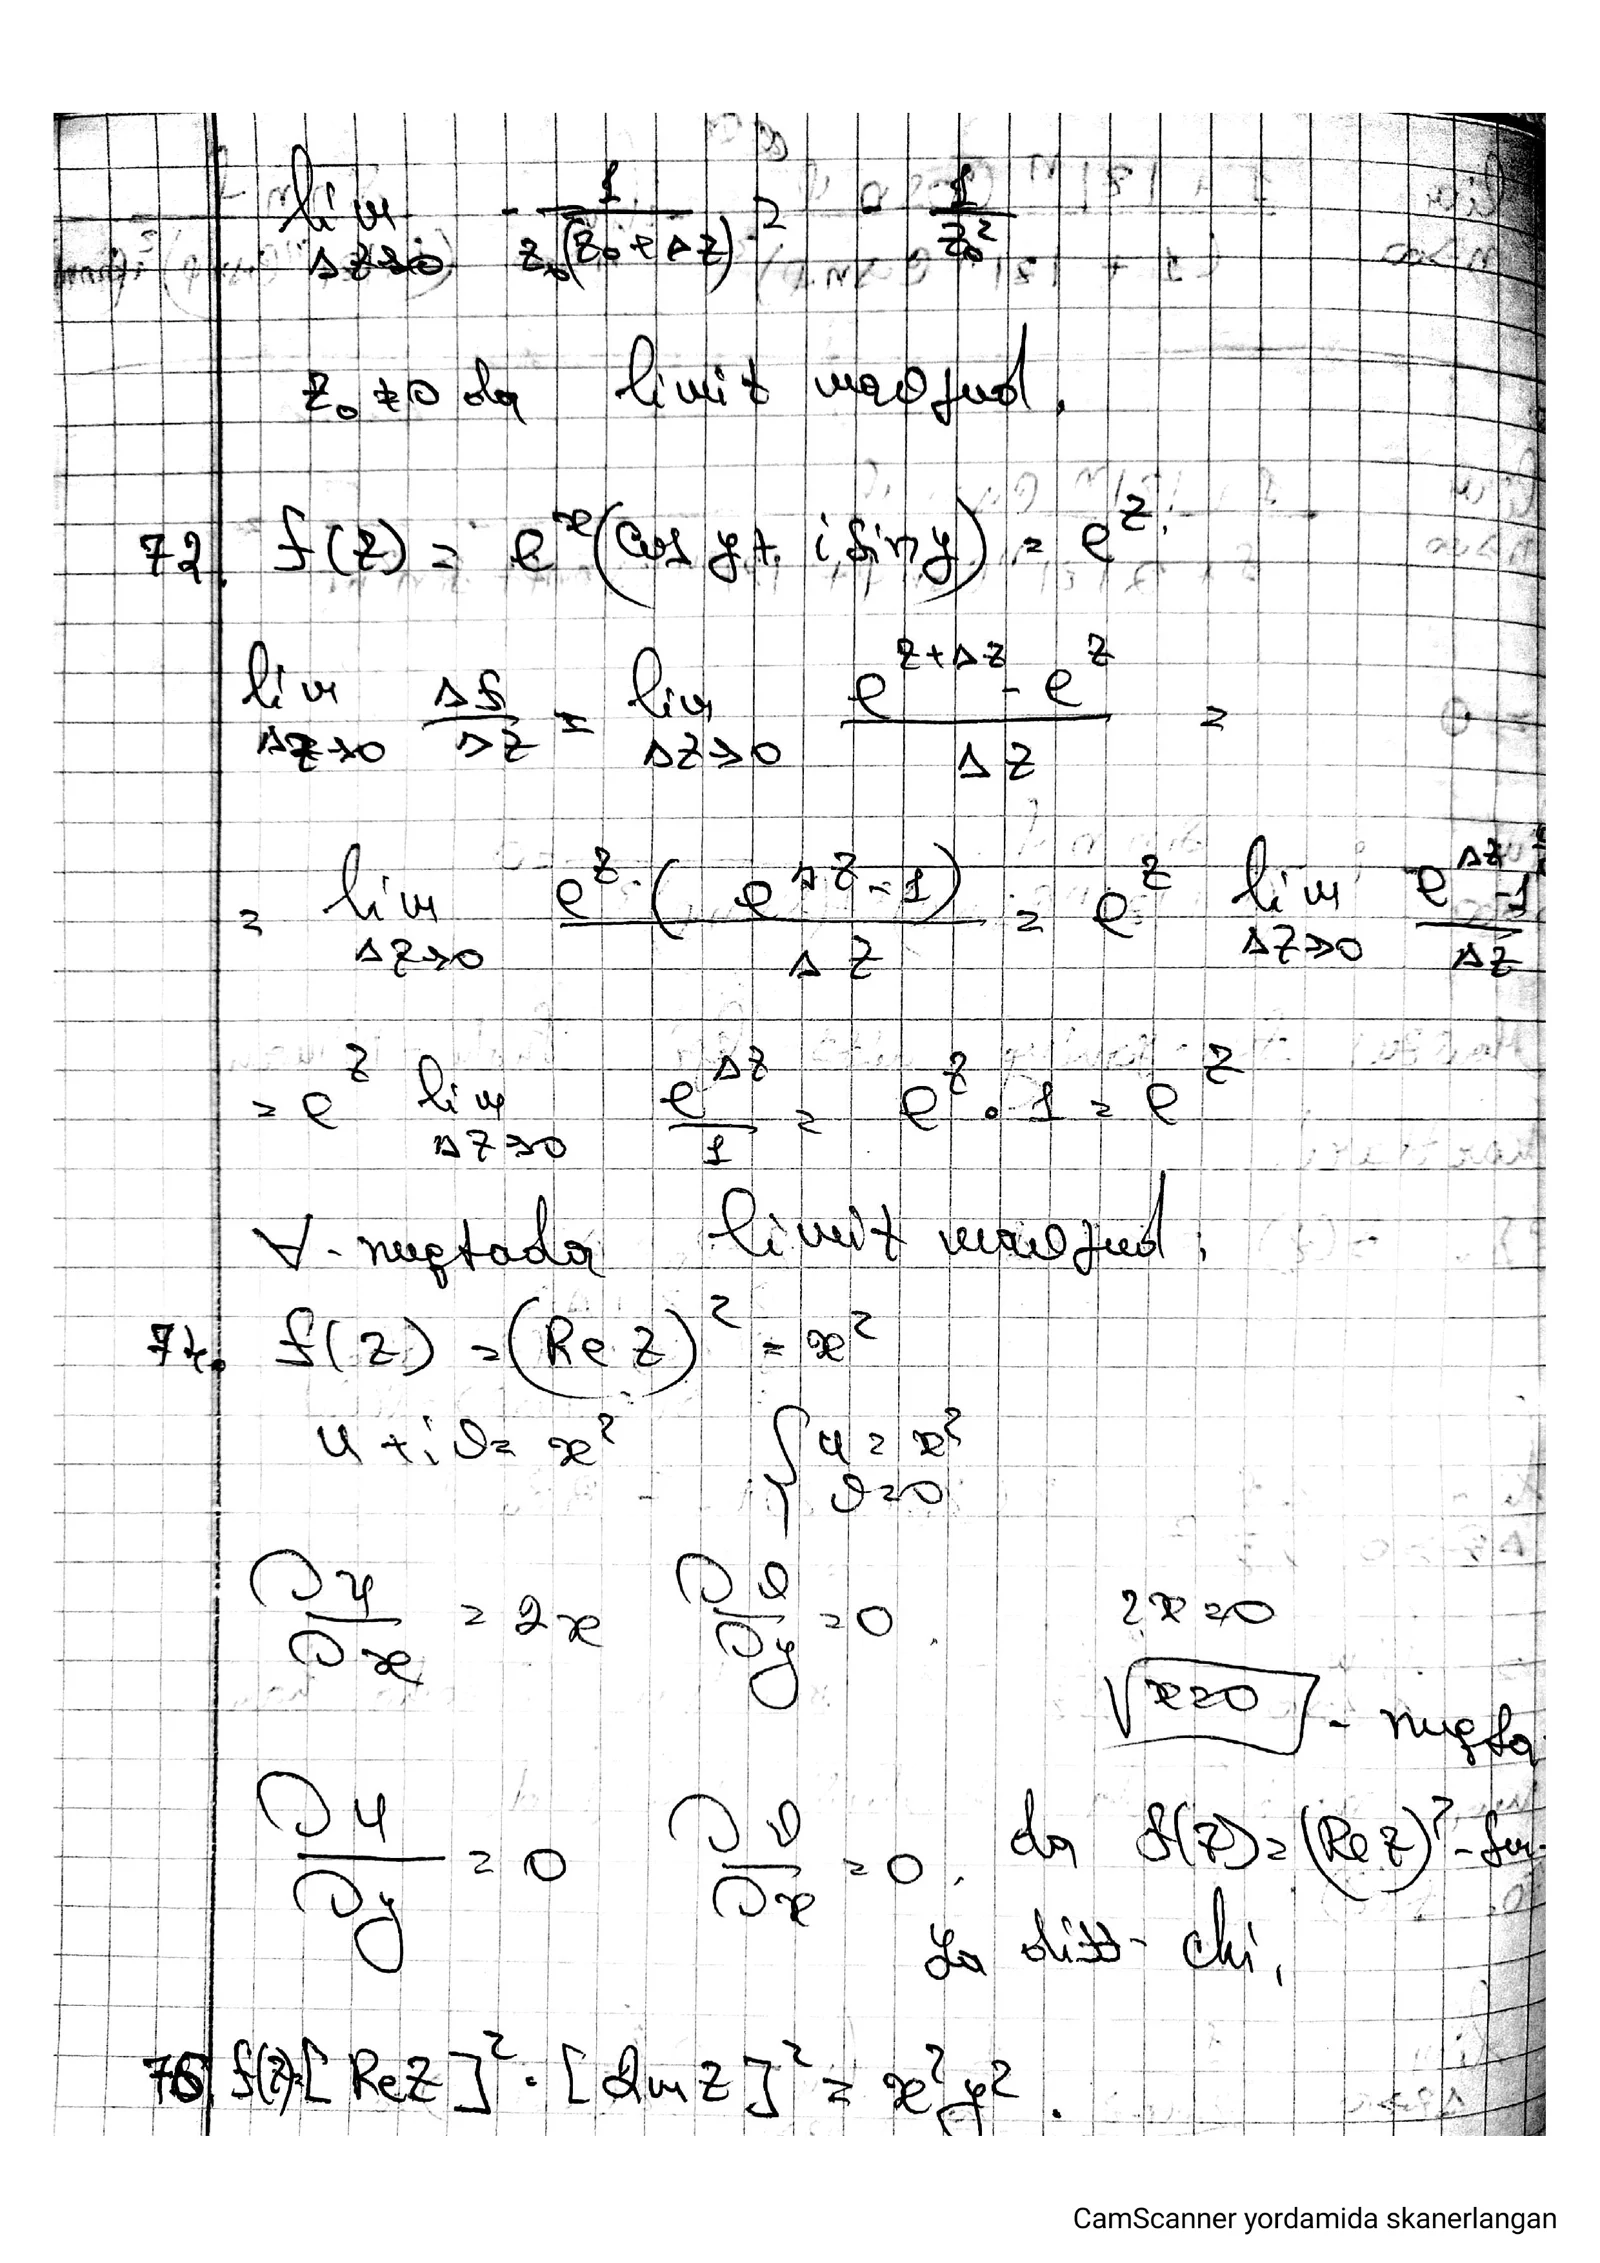 lim Δz→0 - 1/(z₀(z₀+Δz)) = - 1/z₀²
z₀≠0 da limit mavjud.
72. f(z) = eˣ(cos y + i sin y) = e^z.
lim Δz→0 Δf/Δz = lim Δz→0 (e^(z+Δz) - e^z)/Δz =
= lim Δz→0 e^z·(e^Δz - 1)/Δz = e^z lim Δz→0 (e^Δz - 1)/Δz
= e^z lim Δz→0 e^Δz/1 = e^z · 1 = e^z
∀ - nuqtada limit mavjud.
74. f(z) = (Re z)² = x²
u + iϑ = x² { u = x² ϑ = 0
∂u/∂x = 2x ∂ϑ/∂y = 0. 2x = 0
x=0 - nuqta
∂u/∂y = 0 ∂ϑ/∂x = 0. da f(z) = (Re z)² - fun-
ya diff- chi.
76. f(z)=[Re z]² · [Im z]² = x²y².
CamScanner yordamida skanerlangan